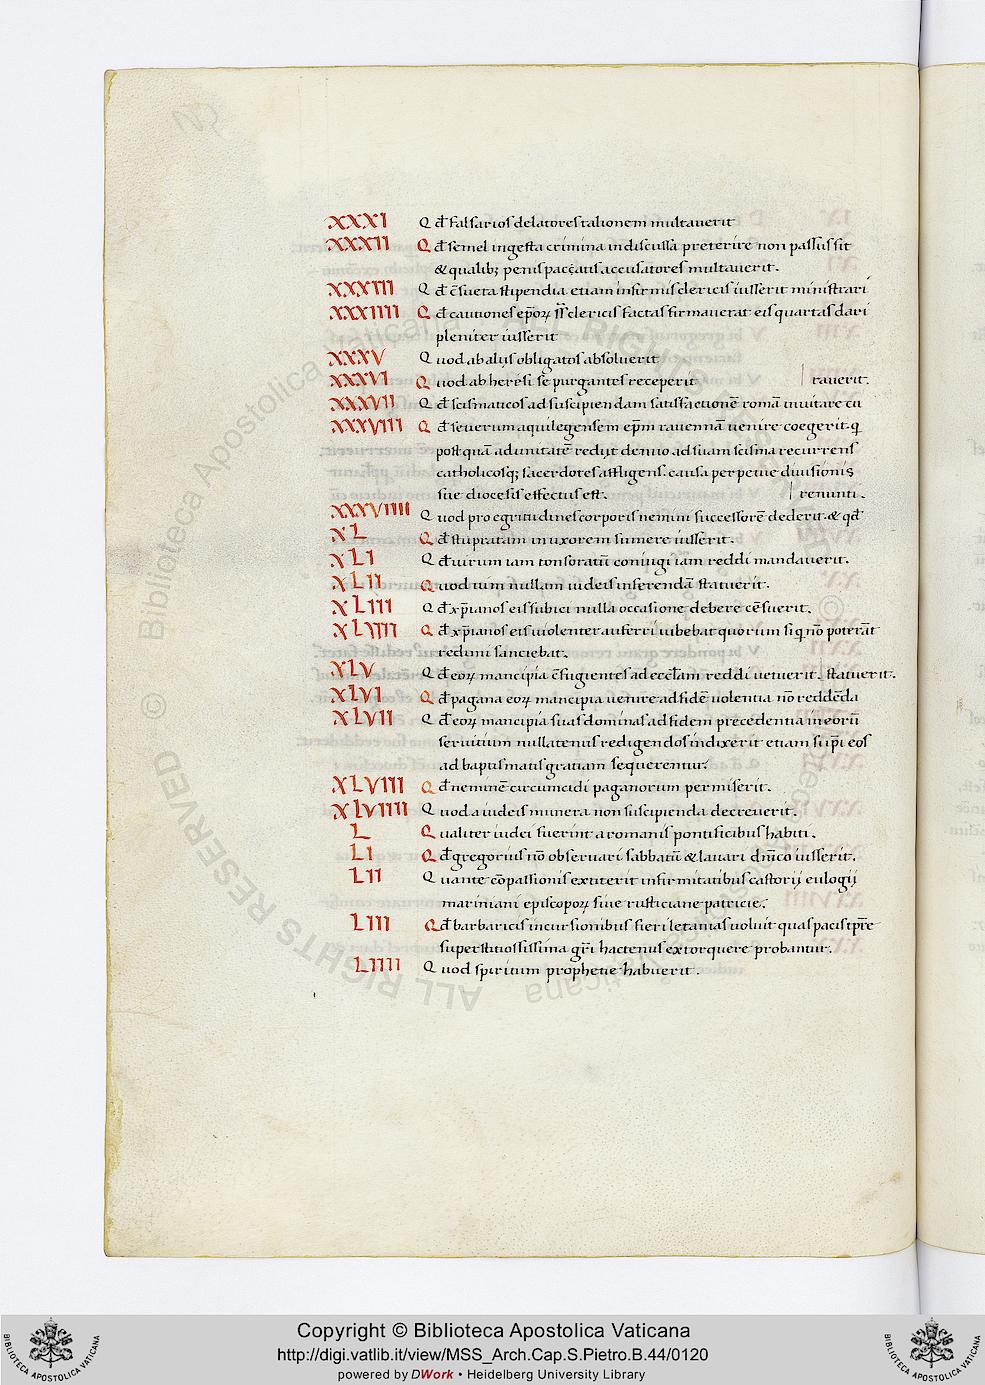 XXXI Qđ falsarios delatores talionem multauerit
XXXII Qđ semel ingesta crimina indiscussa preterire non passus sit
& qualib; penis paccatis accusatores multauerit.
XXXIII Qđ c̄sueta stipendia etiam infirmis clericis iusserit ministrari
XXXIIII Qđ cautiones ep̄oꝝ s̄s clericis factas firmauerat eis quartas dari
pleniter iusserit
XXXV Quod ab alijs obligatos absoluerit
XXXVI Quod ab heresi se purgantes receperit | rauerit.
XXXVII Qđ scismaticos ad suscipiendam satisfactionē romā inuitare cu
XXXVIII Qđ seuerum aquilegensem ep̄m rauennā uenire coegerit. q
post quā ad unitatē redijt denuo ad suam scisma recurrens
catholicosq; sacerdotes affligens. causa perpetue diuisionis
sue diocesis effectus est. | renunti.
XXXVIIII Quod pro egritudines corporis nemini successorē dederit. & qđ
XL Qđ stupratam in uxorem sumere iusserit.
XLI Qđ uirum iam tonsoratū coniugi iam reddi mandauerit.
XLII Quod uim nullam iudeis inferendā statuerit.
XLIII Qđ xp̄ianos eis subici nulla occasione debere cēsuerit.
XLIIII Qđ xp̄ianos eis uiolenter auferri iubebat quorum siq nō poterāt
redimi sanciebat.
XLV Qđ eoꝝ mancipia c̄fugientes ad eccl̄am reddi uetuerit. statuerit.
XLVI Qđ pagana eoꝝ mancipia uenire ad fidē uolentia nō reddēda
XLVII Qđ eoꝝ mancipia suas dominas ad fidem precedentia in eorū
seruitium nullatenus redigendos indixerit etiam si ip̄i eos
ad baptismatis gratiam sequerentur.
XLVIII Qđ neminē circumcidi paganorum permiserit.
XLVIIII Quod a iudeis munera non suscipienda decreuerit.
L Qualiter iudei fuerint a romanis pontificibus habiti.
LI Qđ gregorius nō obseruari sabbatū & lauari dn̄ico iusserit.
LII Quante cōpassionis extiterit infirmitatibus castorij eulogij
mariniani episcopoꝝ siue rusticiane patricie.
LIII Qđ barbaricis incursionibus fieri letanias uoluit quas pacis tp̄re
superstitiosissima gr̄i hactenus extorquere probantur.
LIIII Quod spiritum prophetie habuerit.
© Biblioteca Apostolica Vaticana ALL RIGHTS RESERVED
Copyright © Biblioteca Apostolica Vaticana
http://digi.vatlib.it/view/MSS_Arch.Cap.S.Pietro.B.44/0120
powered by DWork • Heidelberg University Library
BIBLIOTECA APOSTOLICA VATICANA
BIBLIOTECA APOSTOLICA VATICANA